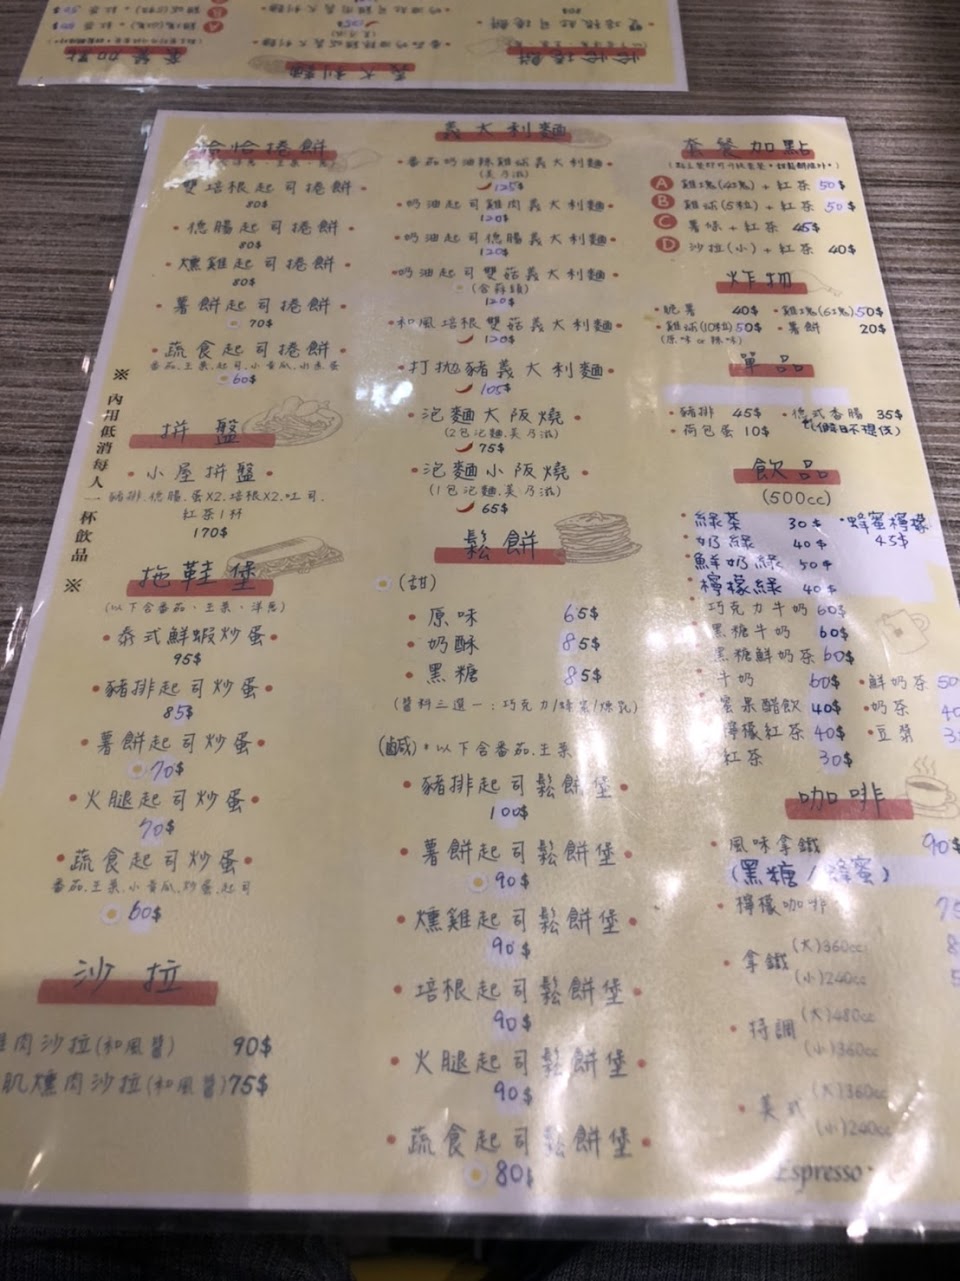 恰恰捲餅
雙培根起司捲餅
80$
德腸起司捲餅
80$
燻雞起司捲餅
80$
薯餅起司捲餅
70$
蔬食起司捲餅
番茄.玉米.起司.小黃瓜.水煮蛋
60$
※ 內用低消每人一杯飲品 ※
拼盤
小屋拼盤
豬排.德腸.蛋X2.培根X2.吐司.
紅茶1杯
170$
拖鞋堡
(以下含番茄、玉米、洋蔥)
泰式鮮蝦炒蛋
95$
豬排起司炒蛋
85$
薯餅起司炒蛋
70$
火腿起司炒蛋
70$
蔬食起司炒蛋
番茄.玉米.小黃瓜.炒蛋.起司
60$
沙拉
肉沙拉(和風醬) 90$
肌燻肉沙拉(和風醬) 75$
義大利麵
番茄奶油辣雞球義大利麵
(美乃滋)
125$
奶油起司雞肉義大利麵
120$
奶油起司德腸義大利麵
120$
奶油起司雙菇義大利麵
(含蒜頭)
120$
和風培根雙菇義大利麵
120$
打拋豬義大利麵
105$
泡麵大阪燒
(2包泡麵.美乃滋)
75$
泡麵小阪燒
(1包泡麵.美乃滋)
65$
鬆餅
(甜)
原味 65$
奶酥 85$
黑糖 85$
(醬料三選一:巧克力/蜂蜜/煉乳)
(鹹)*以下含番茄.玉米
豬排起司鬆餅堡
100$
薯餅起司鬆餅堡
90$
燻雞起司鬆餅堡
90$
培根起司鬆餅堡
90$
火腿起司鬆餅堡
90$
蔬食起司鬆餅堡
80$
套餐加點
A 雞塊(4塊)+紅茶 50$
B 雞球(5粒)+紅茶 50$
C 薯條+紅茶 45$
D 沙拉(小)+紅茶 40$
炸物
脆薯 40$ 雞塊(6塊) 50$
雞球(10粒) 50$ 薯餅 20$
(原味 or 辣味)
單品
豬排 45$ 德式香腸 35$
荷包蛋 10$ (假日不提供)
飲品
(500cc)
綠茶 30$ 蜂蜜檸檬
奶綠 40$ 45$
鮮奶綠 50$
檸檬綠 40$
巧克力牛奶 60$
黑糖牛奶 60$
黑糖鮮奶茶 60$
牛奶 60$ 鮮奶茶 50
果醋飲 40$ 奶茶
檸檬紅茶 40$ 豆漿
紅茶 30$
咖啡
風味拿鐵 90$
(黑糖/蜂蜜)
檸檬咖啡
拿鐵 (大)360cc
(小)240cc
特調 (大)480cc
(小)360cc
美式 (大)360cc
(小)240cc
Espresso